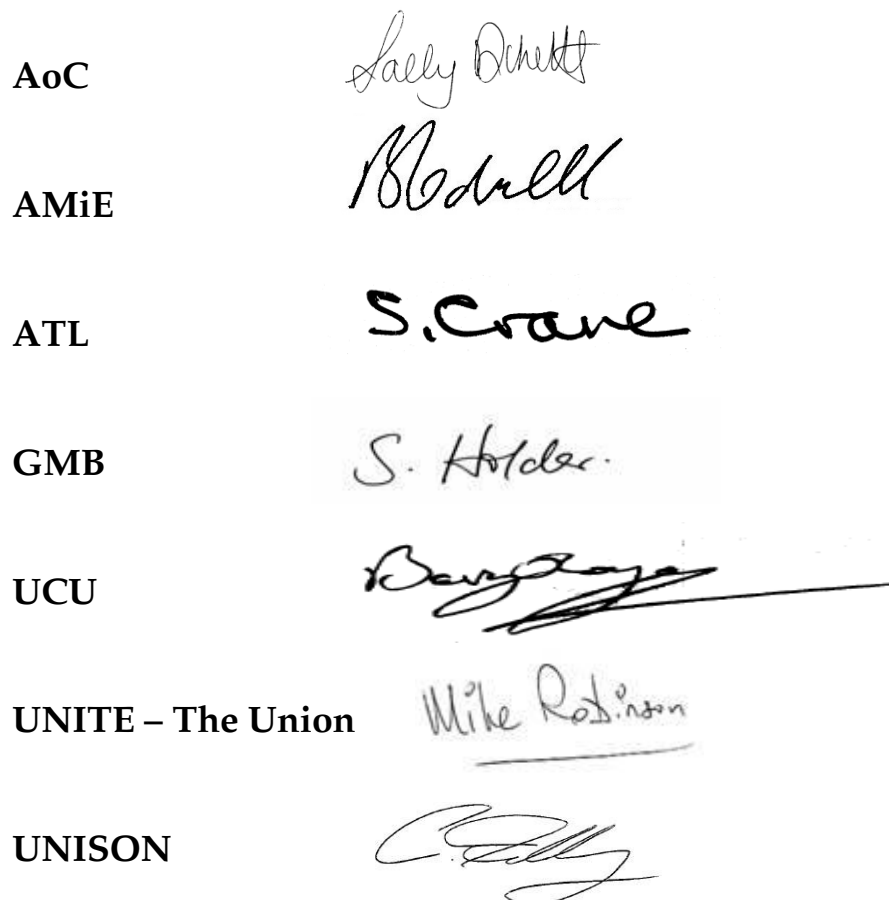 AoC Sally
AMiE
ATL S. Crane
GMB S. Holder.
UCU Barry
UNITE – The Union Mike Robinson
UNISON C.